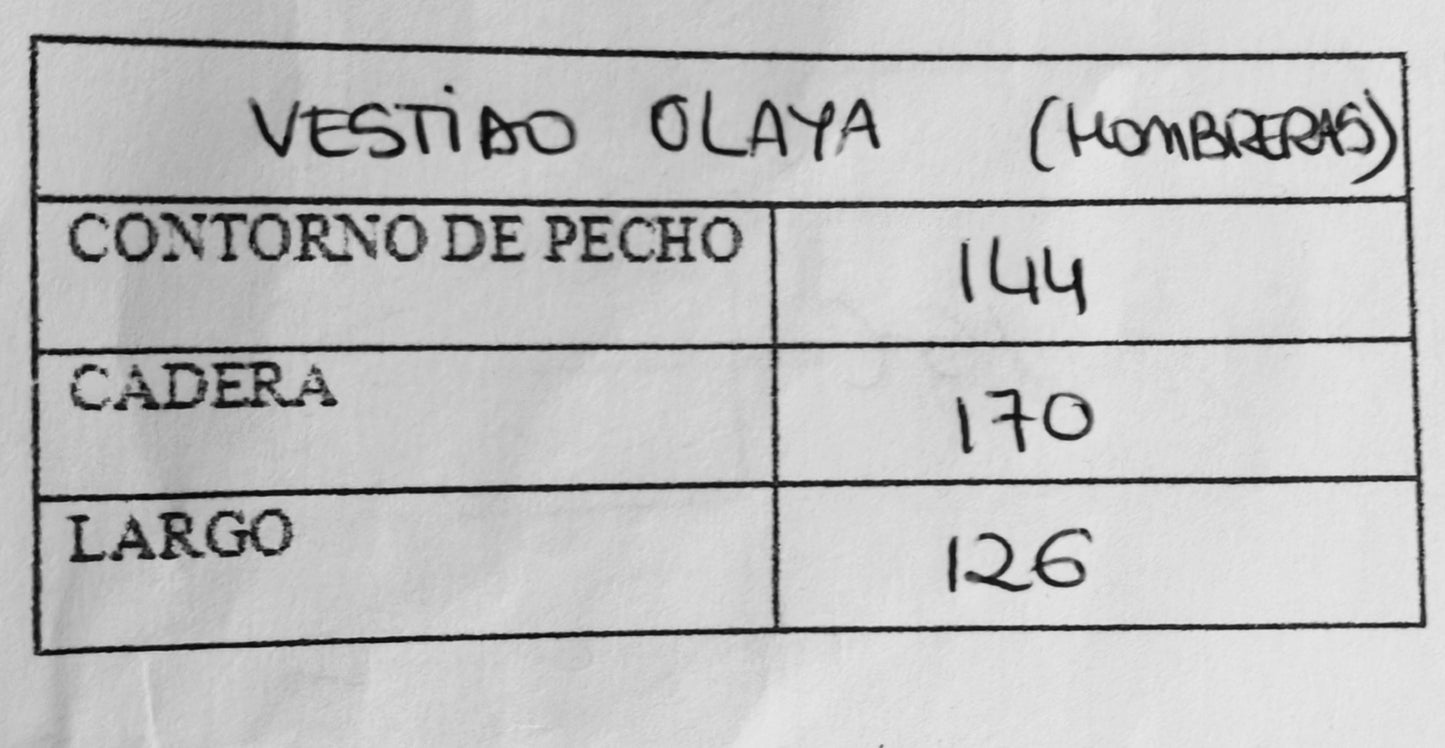 VESTiDO OLAYA (HOMBRERAS)
CONTORNO DE PECHO 144
CADERA 170
LARGO 126